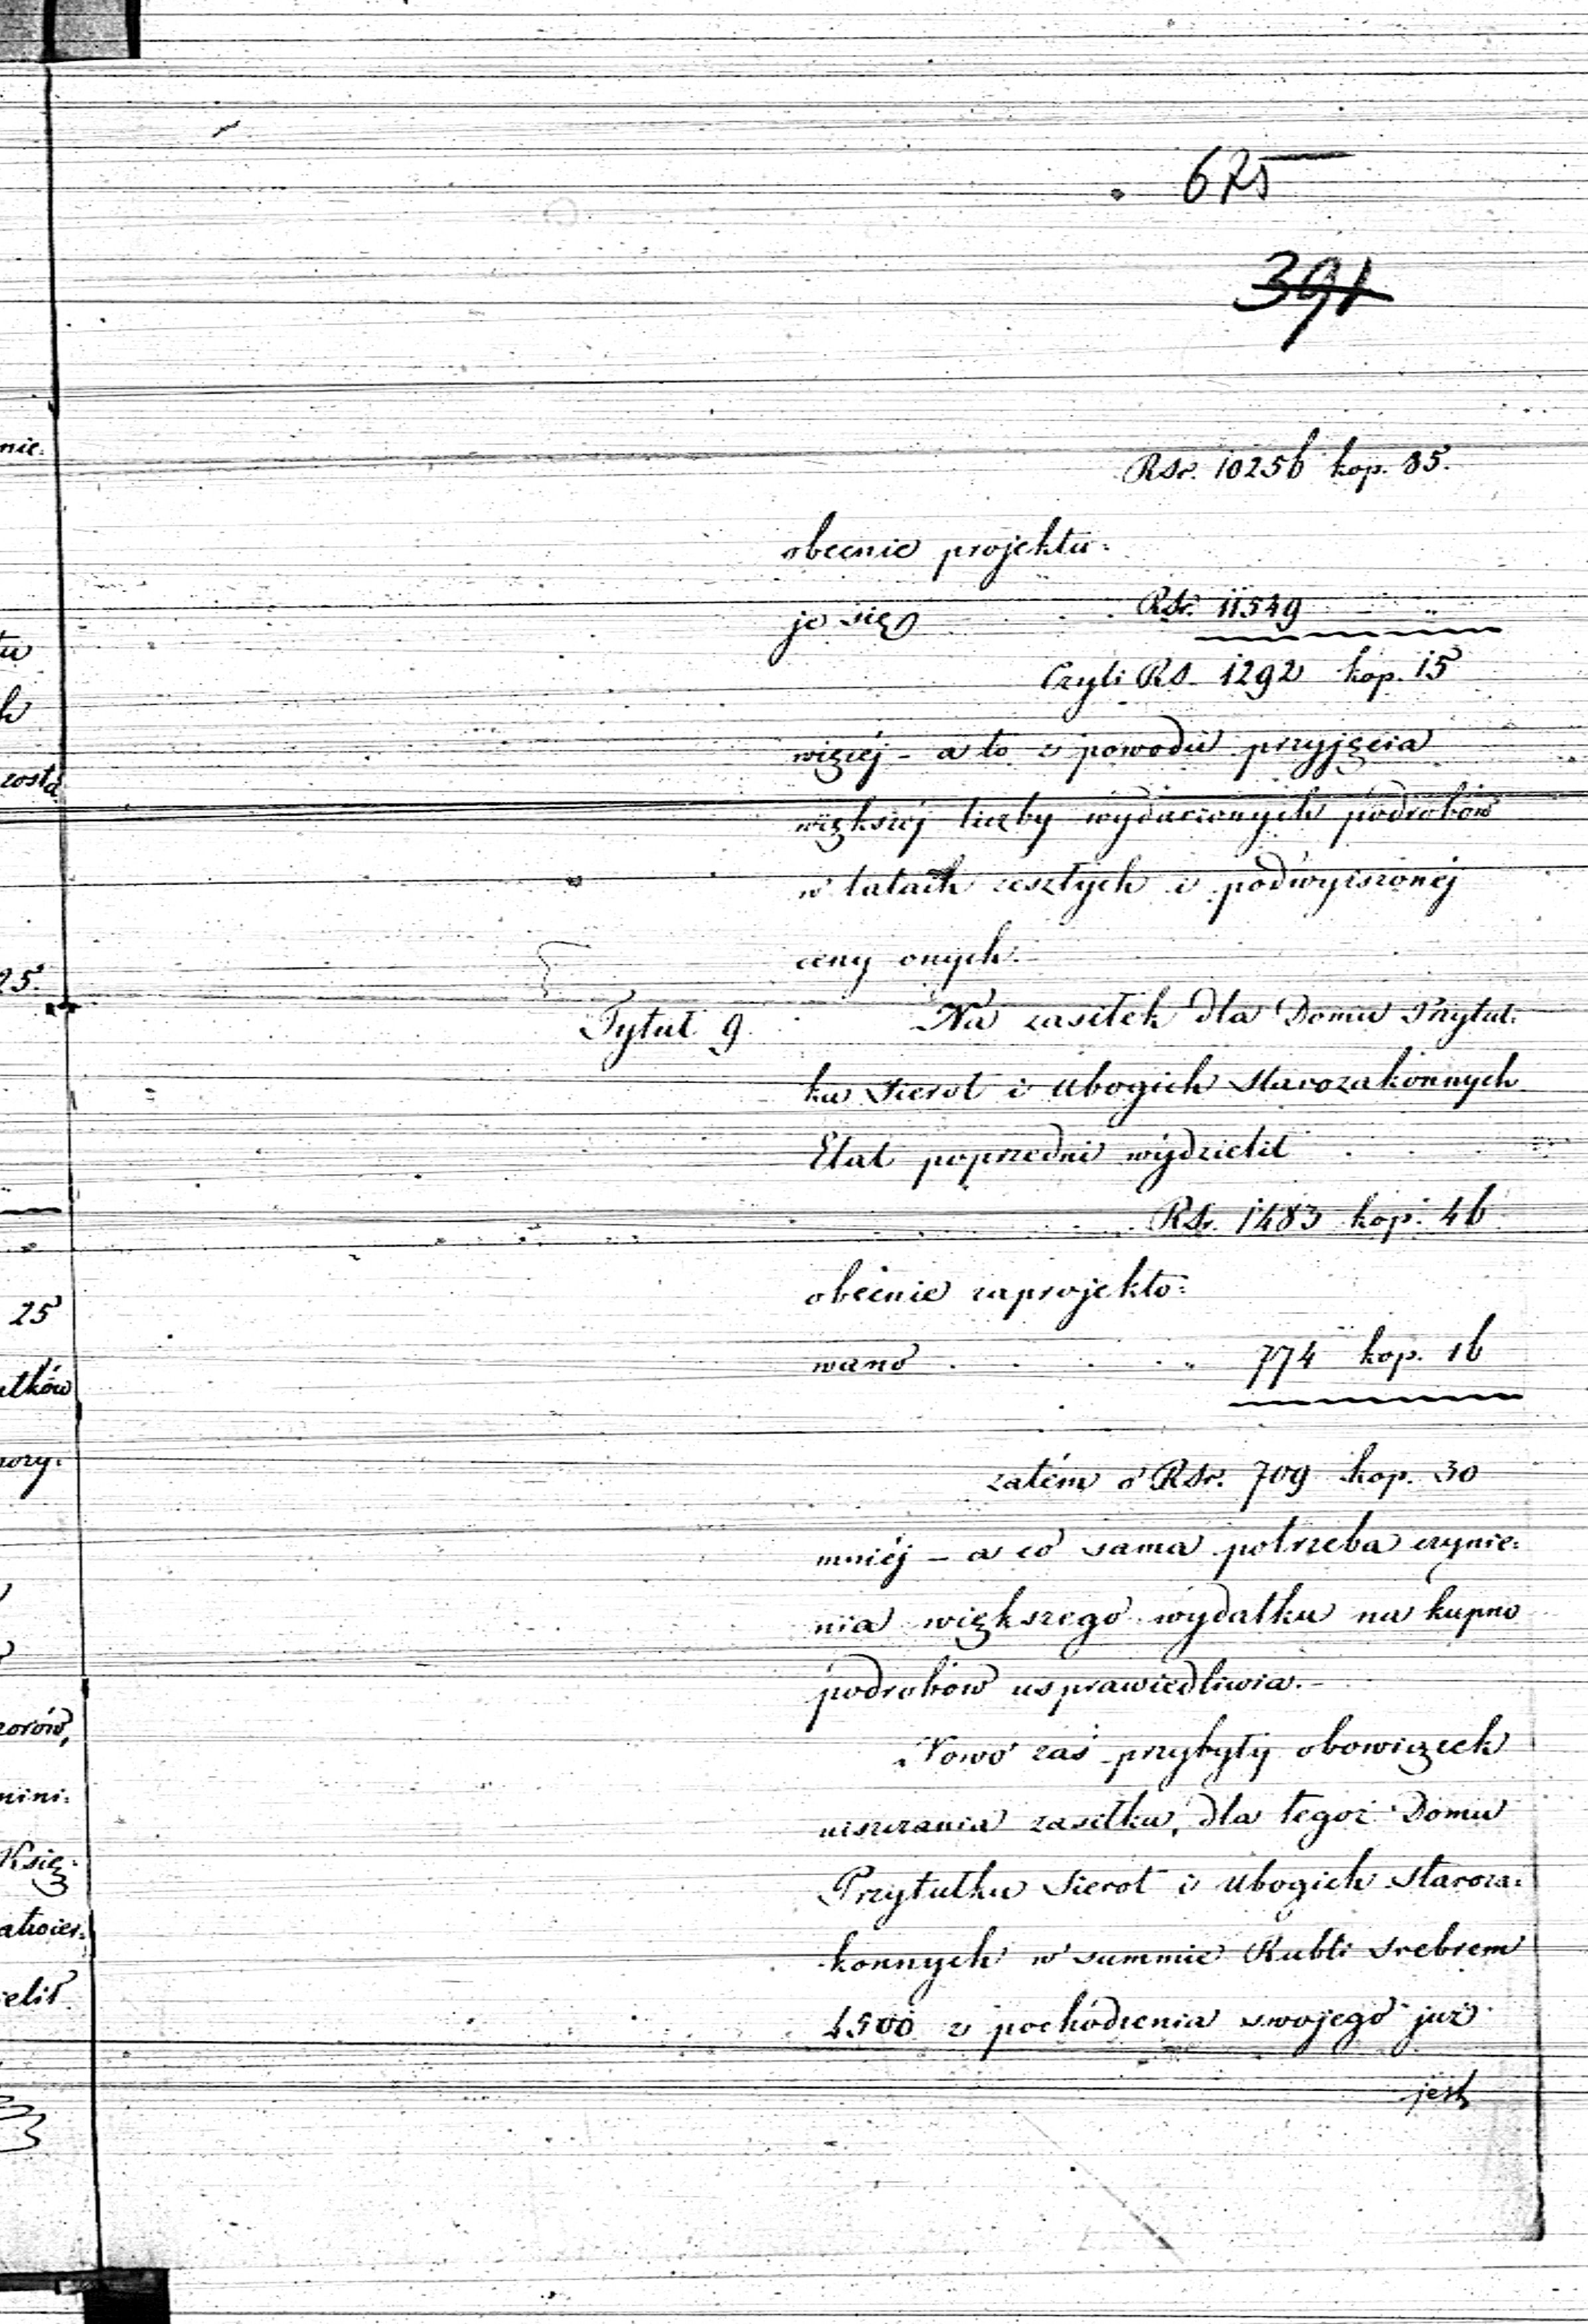 675
391
Rsr. 10256 kop. 85.
obecnie projektu=
je się . . Rsr. 11549 „
Czyli RS. 1292 kop. 15
więcéj – a to z powodu przyjęcia
większéj liczby wydarzonych podrobów
w latach zeszłych i podwyższonéj
ceny onych. –
Tytuł 9. Na zasiłek dla Domu Przytuł=
ku Sierot i Ubogich Starozakonnych
Etat poprzedni wydzielił . . .
. . . Rsr. 1483 kop. 46
obecnie zaprojekto=
wano . . . . „ 774 kop. 16
zatém o Rsr. 709 kop. 30
mniéj – a co sama potrzeba czynie=
nia większego wydatku na kupno
podrobów usprawiedliwia. –
Nowo zaś przybyły obowiązek
uiszczania zasiłku, dla tegoż Domu
Przytułku Sierot i Ubogich Staroza=
konnych w summie Rubli Srebrem
4500 z pochodzenia swojego już
jest